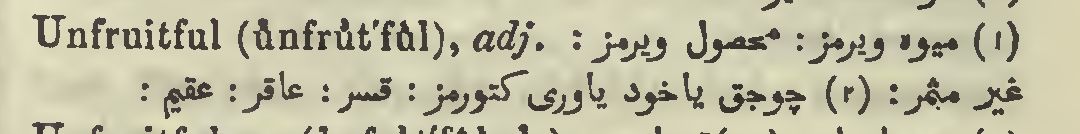 Unfruitful (ŭnfrût′fŭl), adj. (۱) میوه ویرمز : محصول ویرمز :
غیر مثمر : (۲) چوجق یاخود یاوری کتورمز : قسر : عاقر : عقیم :